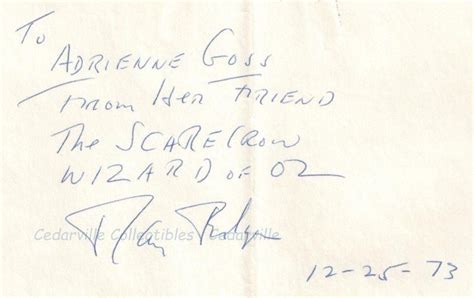 To
ADRIENNE GOSS
From Her FRIEND
The SCARECROW
WIZARD OF OZ
Ray Bolger
Cedarville Collectibles Cedarville
12-25-73